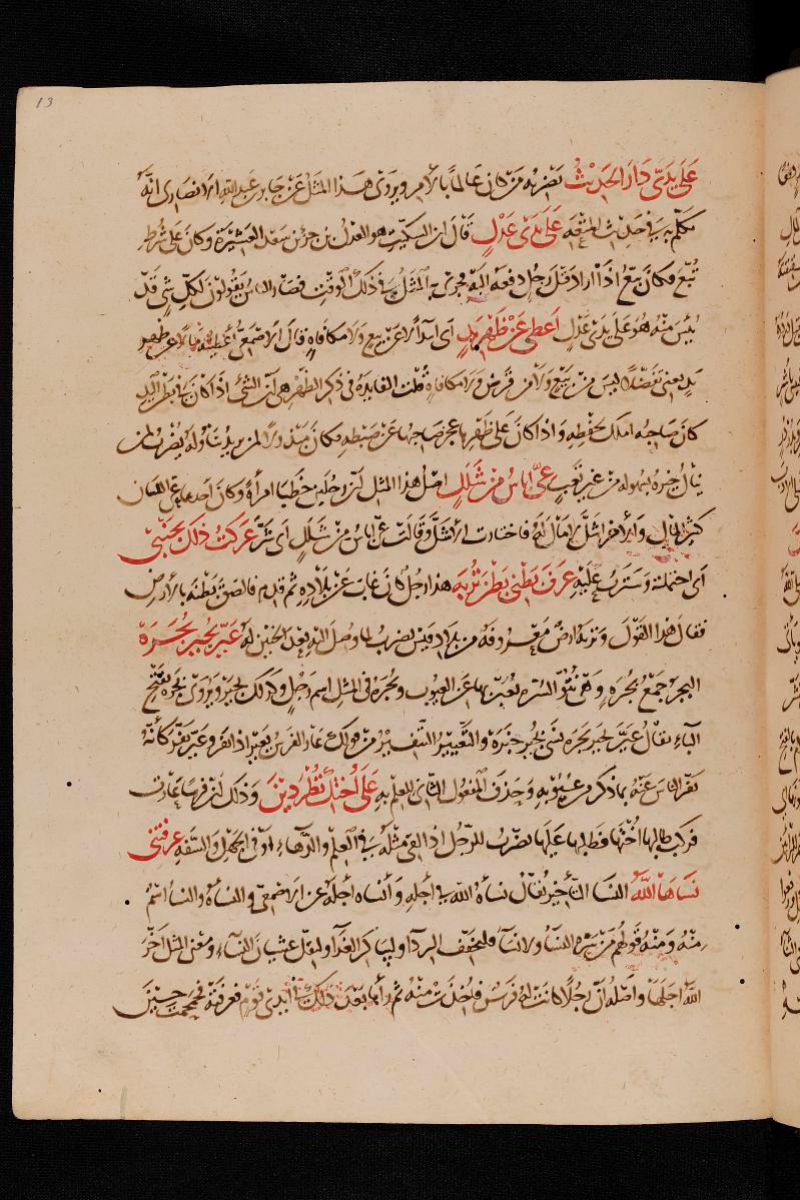 13
على يدي دار الحديث يضربه من كان عالما بالامر ويروى هذا المثل عن جابر عبد الله الانصارى انه
تكلم به في حديث المتعه على يدى عدل قال ابن السكيت هو العدل بن جزء بن سعد العشيرة وكان على شرط
تبع فكان تبع اذا اراد قتل رجل دفعه اليه فجرى به المثل في ذلك الوقت فصار الناس يقولون لكل شى قد
يئس منه هو على يدى عدل اعطى عن ظهر يد اى ابتداء لا عن بيع ولا مكافاه قال الاصمعى اعطيته مالا عن ظهر
يد يعنى تفضلا ليس من بيع ولا من قرض ولا مكافاة قلت الفايدة فى ذكر الظهر هى ان الشئ اذا كان في بطن اليد
كان صاحبه املك لحفظه واذا كان على ظهرها عجز صاحبها عن ضبطه فكان مبذولا لمن يريد تناوله يضرب لمن
ينال خيره بسهولة من غير تعب عى اباس من شلل اصل هذا المثل ان رجلين خطبا امرأة وكان احدهما عى اللسان
كثير المال والاخر اشل لا مال له فاختارت الاشل وقالت عى اباس من شلل اى شر عركت ذلك بجنبى
اى احتملته وسترت عليه عرف بطنى بطن تربه هذا رجل كان غاب عن بلاده ثم قدم فالصق بطنه بالارض
فقال هذا القول وتربة ارض معروفة من بلاد قيس يضرب لمن وصل اليه بعد الحنين له عير بجير بجره
البجر جمع بجره وهى نتو السره يعبر بها عن العيوب وبجره فى المثل اسم رجل وكذلك بجير ويروى بجره بفتح
الباء يقال عير بجير بجره نسى بجير خبره والتعيير التنفير من قولك عار الفرس يعير اذا نفر وعير نفر كانه
نفر الناس عنه بما ذكر من عيوبه وحذف المفعول الثانى للعلم به على اختك تطردين وذلك ان فرسا عارت
فركب طالبها اختها فطلبها عليها يضرب للرجل اذا لقى مثله في العلم والدهاء او فى الجهل والسفه عرفتنى
نساها الله النسا التأخير يقال نساه الله في اجله وانساه اجله عن الاصمعى والنسأة والنسأ اسم
منه ومنه قولهم من سره النسأ ولا نسأ فليخفف الردا وليباكر الغدا وليقل غشيان النساء ومعنى المثل اخر
الله اجلها واصله ان رجلا كانت له فرس فاخذت منه ثم رأها بعد ذلك في ايدى قوم فعرفته فحمحمت حين